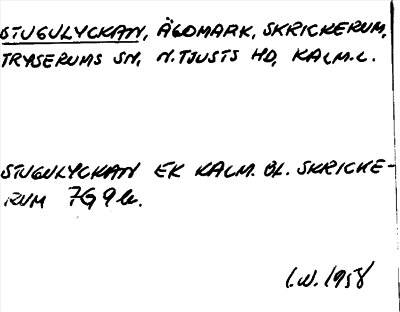 STUGULYCKAN, ÄGOMARK, SKRICKERUM,
TRYSERUMS SN, N. TJUSTS HD, KALM. L.
STUGULYCKAN EK KALM. BL. SKRICKE-
RUM 7G9b.
I.W. 1958